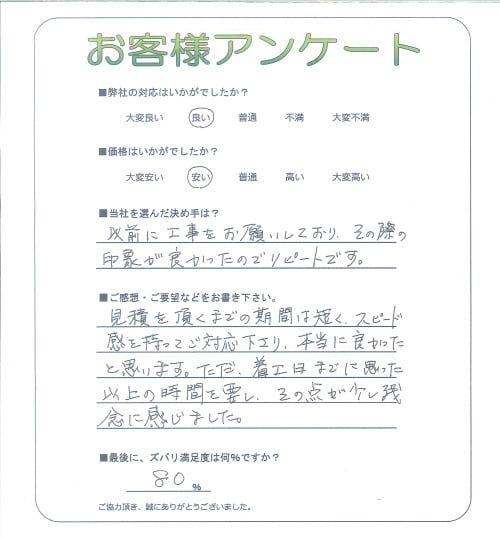 お客様アンケート
■弊社の対応はいかがでしたか？
大変良い 良い 普通 不満 大変不満
■価格はいかがでしたか？
大変安い 安い 普通 高い 大変高い
■当社を選んだ決め手は？
以前に工事をお願いしており、その際の
印象が良かったのでリピートです。
■ご感想・ご要望などをお書き下さい。
見積を頂くまでの期間は短く、スピード
感を持ってご対応下さり、本当に良かった
と思います。ただ、着工日までに思った
以上の時間を要し、その点が少し残
念に感じました。
■最後に、ズバリ満足度は何%ですか？
80 %
ご協力頂き、誠にありがとうございました。